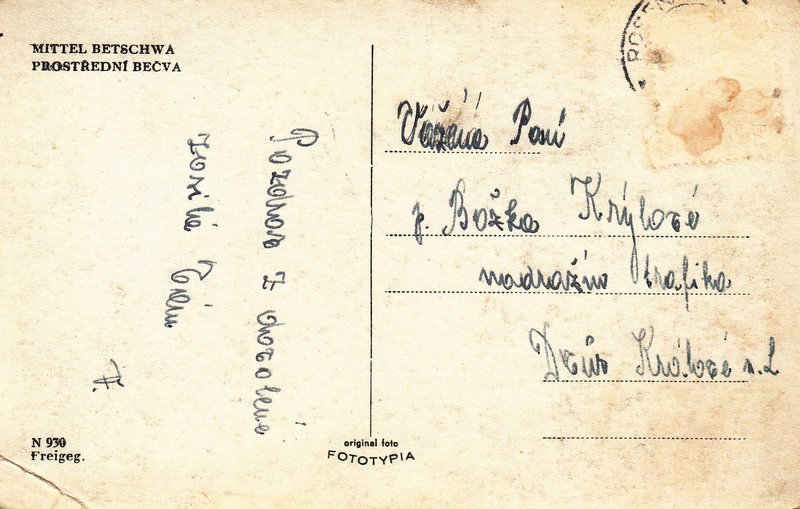 MITTEL BETSCHWA
PROSTŘEDNÍ BEČVA
Pozdrav z dovolené
zasílá Vám
F.
N 930
Freigeg.
original foto
FOTOTYPIA
Vážená Paní
p. Božka Krýlové
nadražní trafika
Dvůr Králové n. L